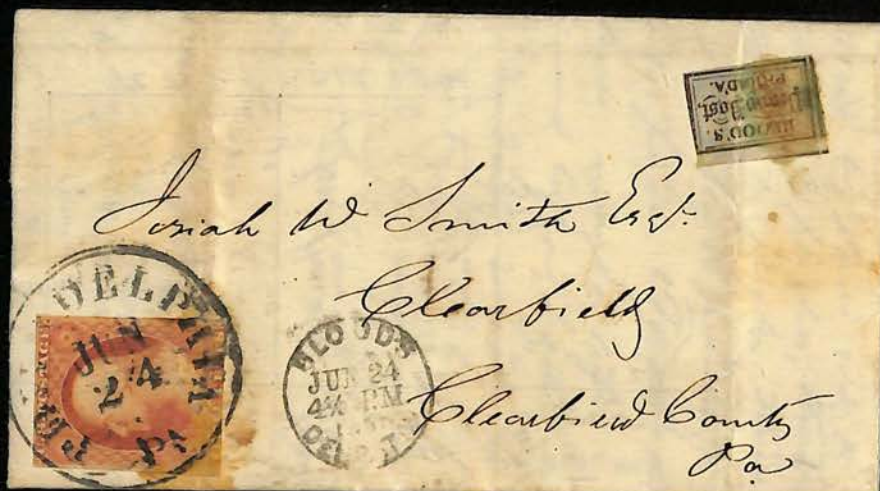 BLOOD'S.
Penny Post,
PHILAD'A.
Josiah W Smith Esqr.
Clearfield
Clearfield County
Pa
PHILADELPHIA
JUN
24
Pa
POSTAGE
BLOOD'S
JUN 24
4½ P.M